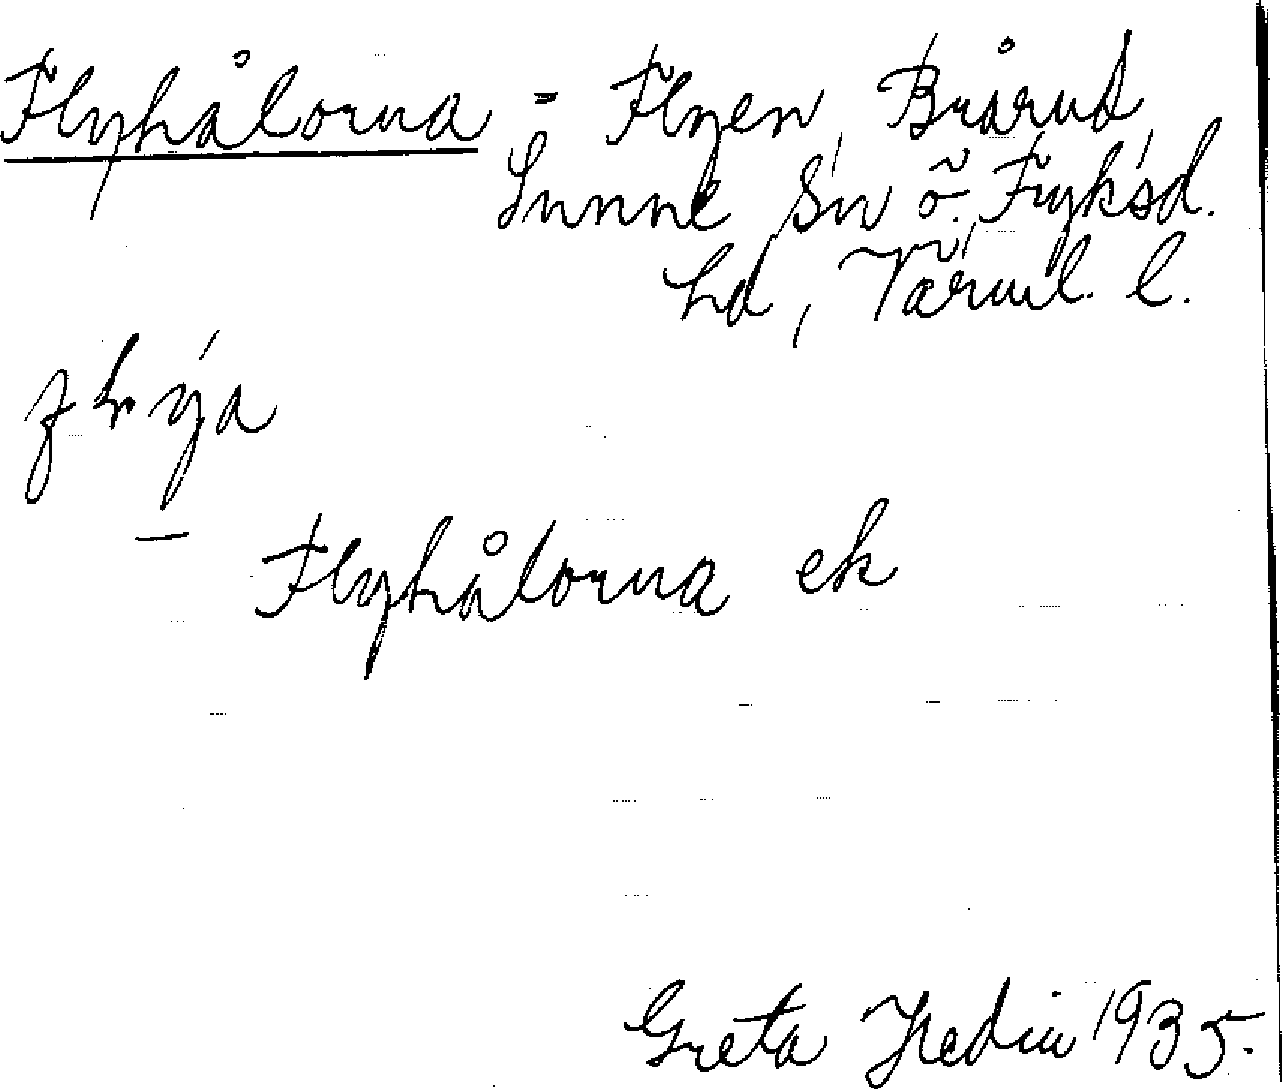 Flyhålorna = Flyen, Brårud
Sunne sn ö. Fryksd.
hd, Värml. l.
Flyhålorna ek
Greta Hedin 1935.